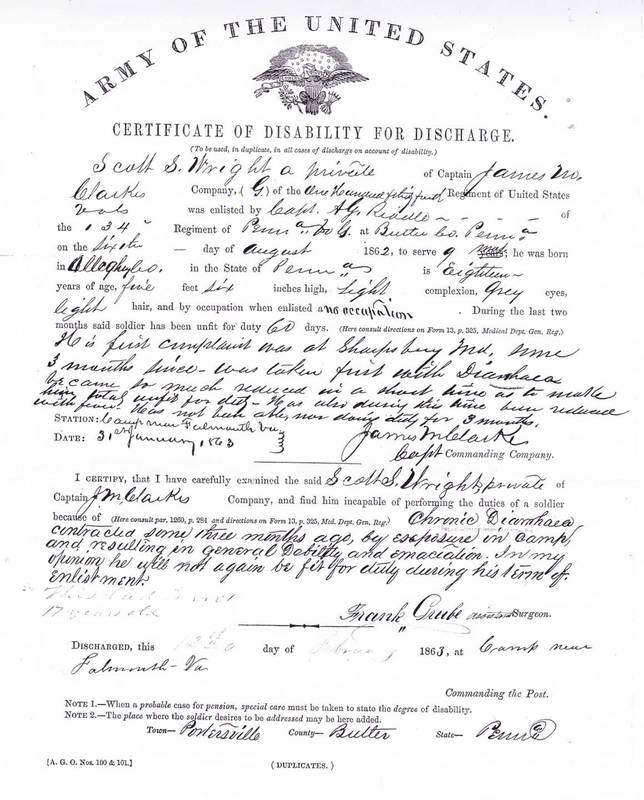 ARMY OF THE UNITED STATES.
CERTIFICATE OF DISABILITY FOR DISCHARGE.
(To be used, in duplicate, in all cases of discharge on account of disability.)
Scott S. Wright a private of Captain James M.
Clarkes Company, (G) of the One Hundred fifty Regiment of United States
Vols was enlisted by Capt. A.G. Riddle of
the 134 Regiment of Penna Vols at Butler Co. Penna
on the sixth day of August 1862, to serve 9 mos; he was born
in Alleghy Co. in the State of Penna is Eighteen
years of age, five feet six inches high, light complexion, Grey eyes,
light hair, and by occupation when enlisted a no occupation. During the last two
months said soldier has been unfit for duty 60 days. (Here consult directions on Form 13, p. 325, Medical Dept. Gen. Reg.)
His first complaint was at Sharpsburg Md, some
3 months since - was taken first with Diarrhaea
became so much reduced in a short time as to make
him total unfit for duty - Has also during this time been reduced
with fever. Has not been able, nor doing duty for 3 months.
STATION: Camp near Falmouth Va
DATE: 31st January 1863
James M Clarke
Capt Commanding Company.
I CERTIFY, that I have carefully examined the said Scott S. Wright, private of
Captain J M Clarkes Company, and find him incapable of performing the duties of a soldier
because of (Here consult par. 1260, p. 281 and directions on Form 13, p. 325, Med. Dept. Gen. Reg.) Chronic Diarrhaea
contracted some three months ago, by exposure in camp,
and resulting in general Debility and emaciation. In my
opinion he will not again be fit for duty during his term of
enlistment.
This lad is not
17 years old
Frank Grube Surgeon.
DISCHARGED, this 12th day of February 1863, at Camp near
Falmouth - Va
Commanding the Post.
NOTE 1.—When a probable case for pension, special care must be taken to state the degree of disability.
NOTE 2.—The place where the soldier desires to be addressed may be here added.
Town— Portersville County— Butler State— Penna
[A. G. O. Nos. 100 & 101.] (DUPLICATES.)